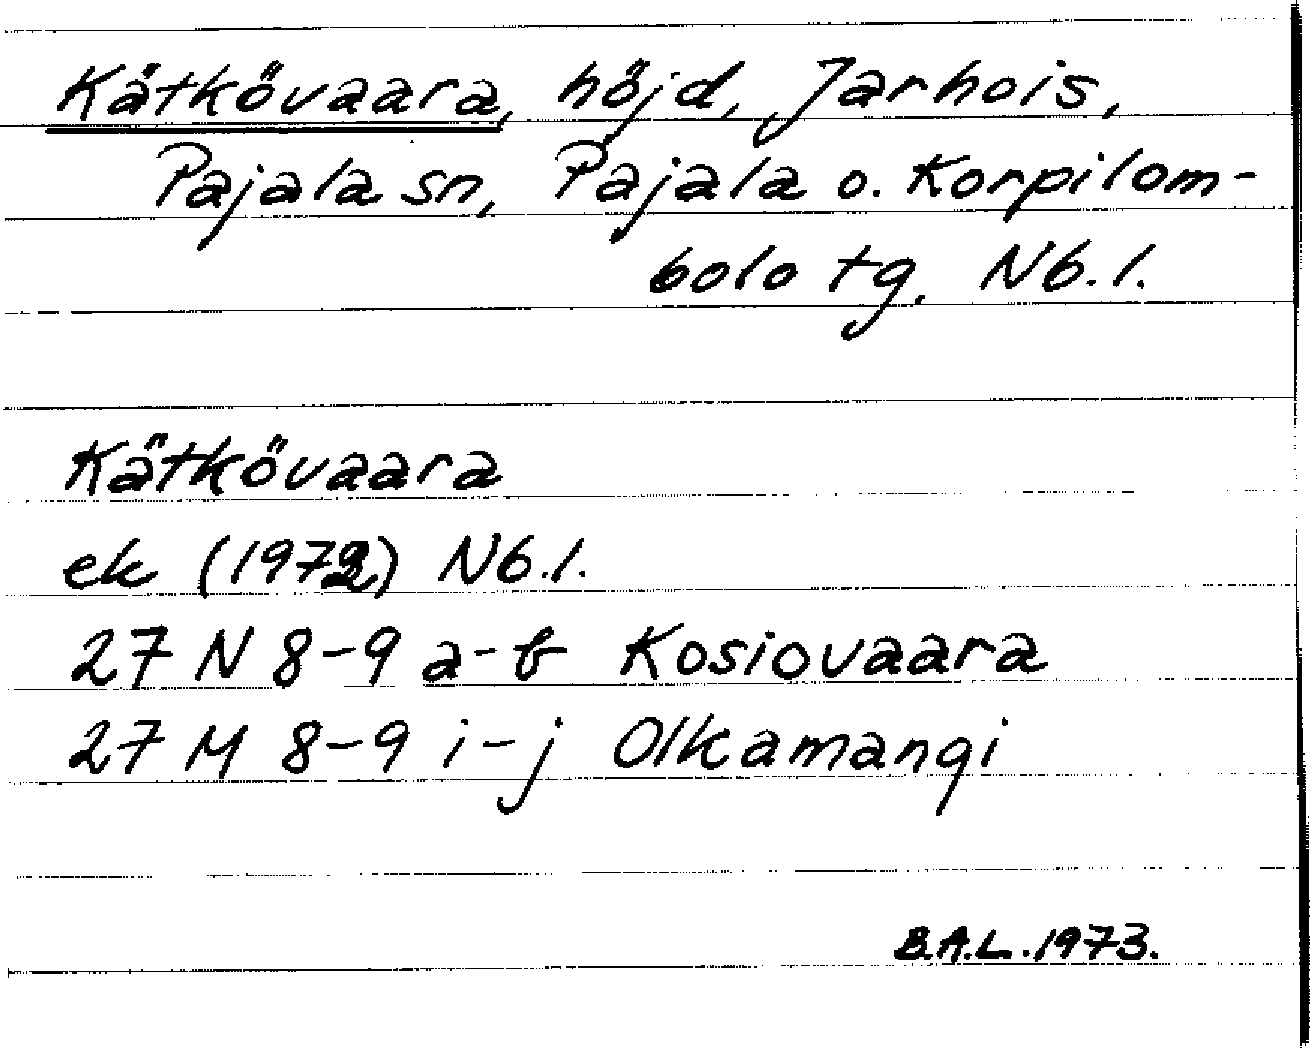 Kätkövaara, höjd, Jarhois,
Pajala sn, Pajala o. Korpilom-
bolo tg. Nb.l.
Kätkövaara
ek (1972) Nb.l.
27 N 8-9 a-b Kosiovaara
27 M 8-9 i-j Olkamangi
B.A.L. 1973.